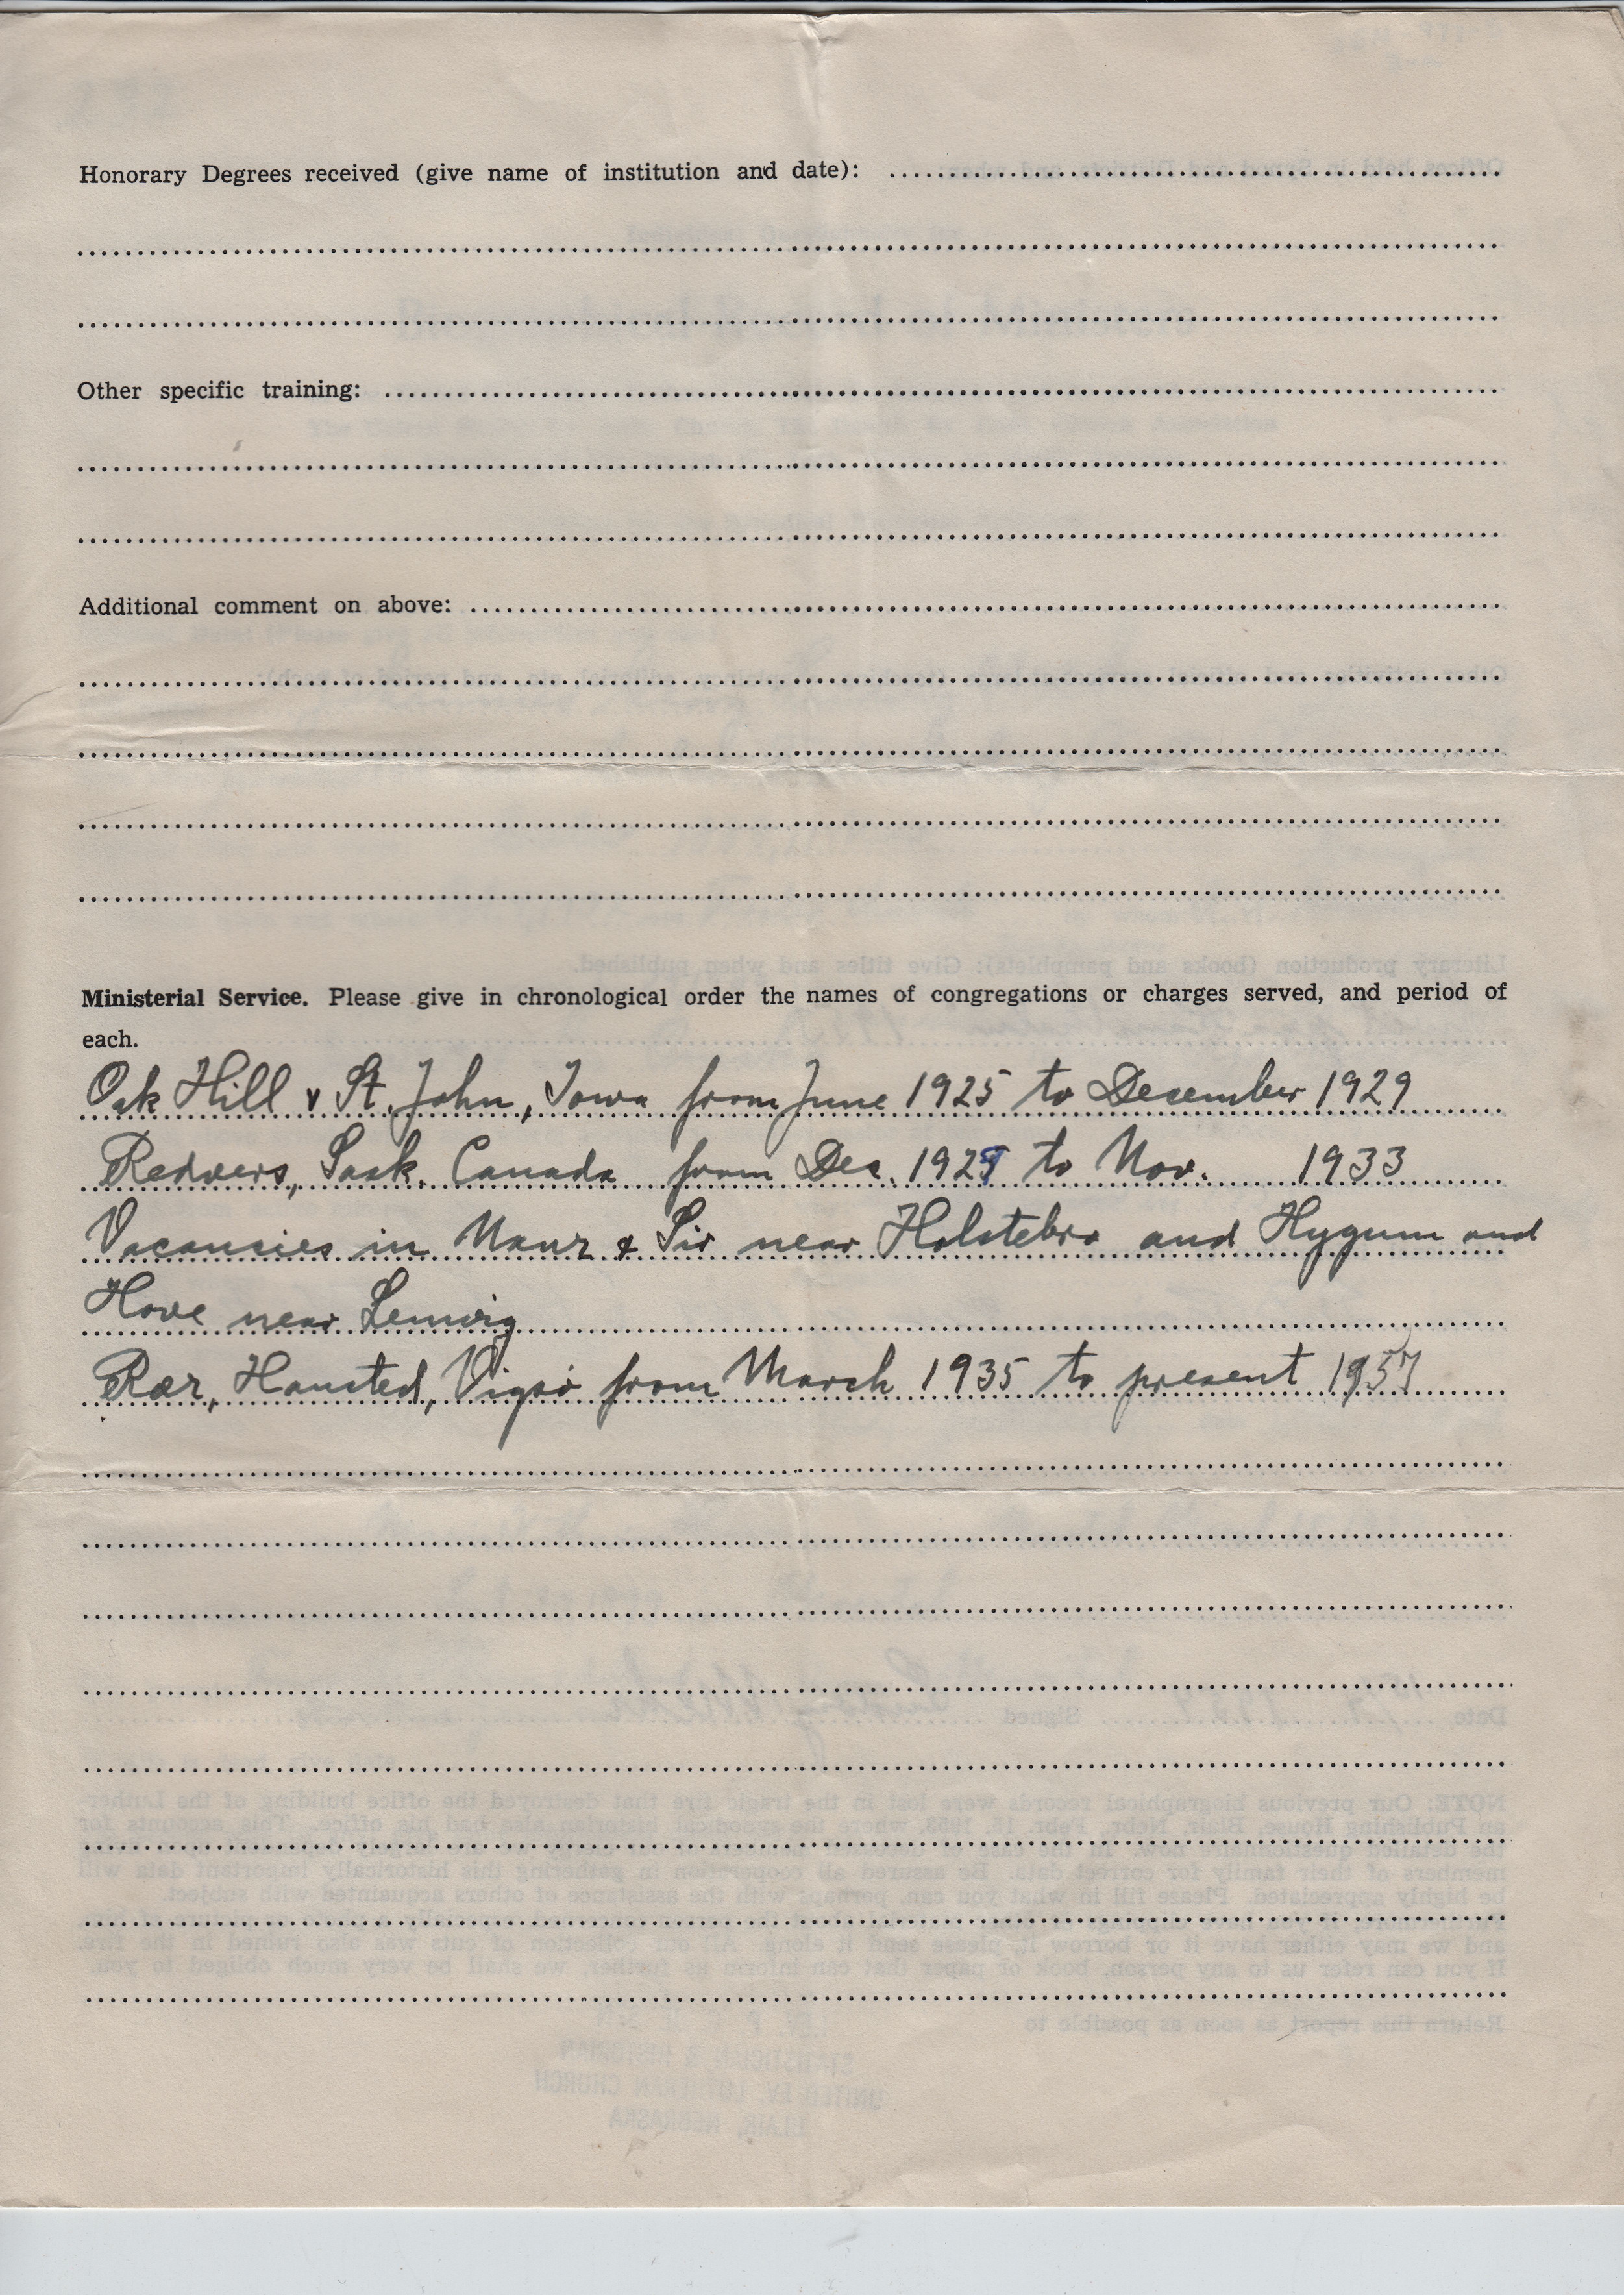 Honorary Degrees received (give name of institution and date):
Other specific training:
Additional comment on above:
Ministerial Service. Please give in chronological order the names of congregations or charges served, and period of
each.
Oak Hill & St. John, Iowa from June 1925 to December 1929
Redvers, Sask. Canada from Dec. 1929 to Nov. 1933
Vacancies in Naur & Sir near Holstebro and Hygum and
Hove near Lemvig
Rær, Hansted, Vigsö from March 1935 to present 1957